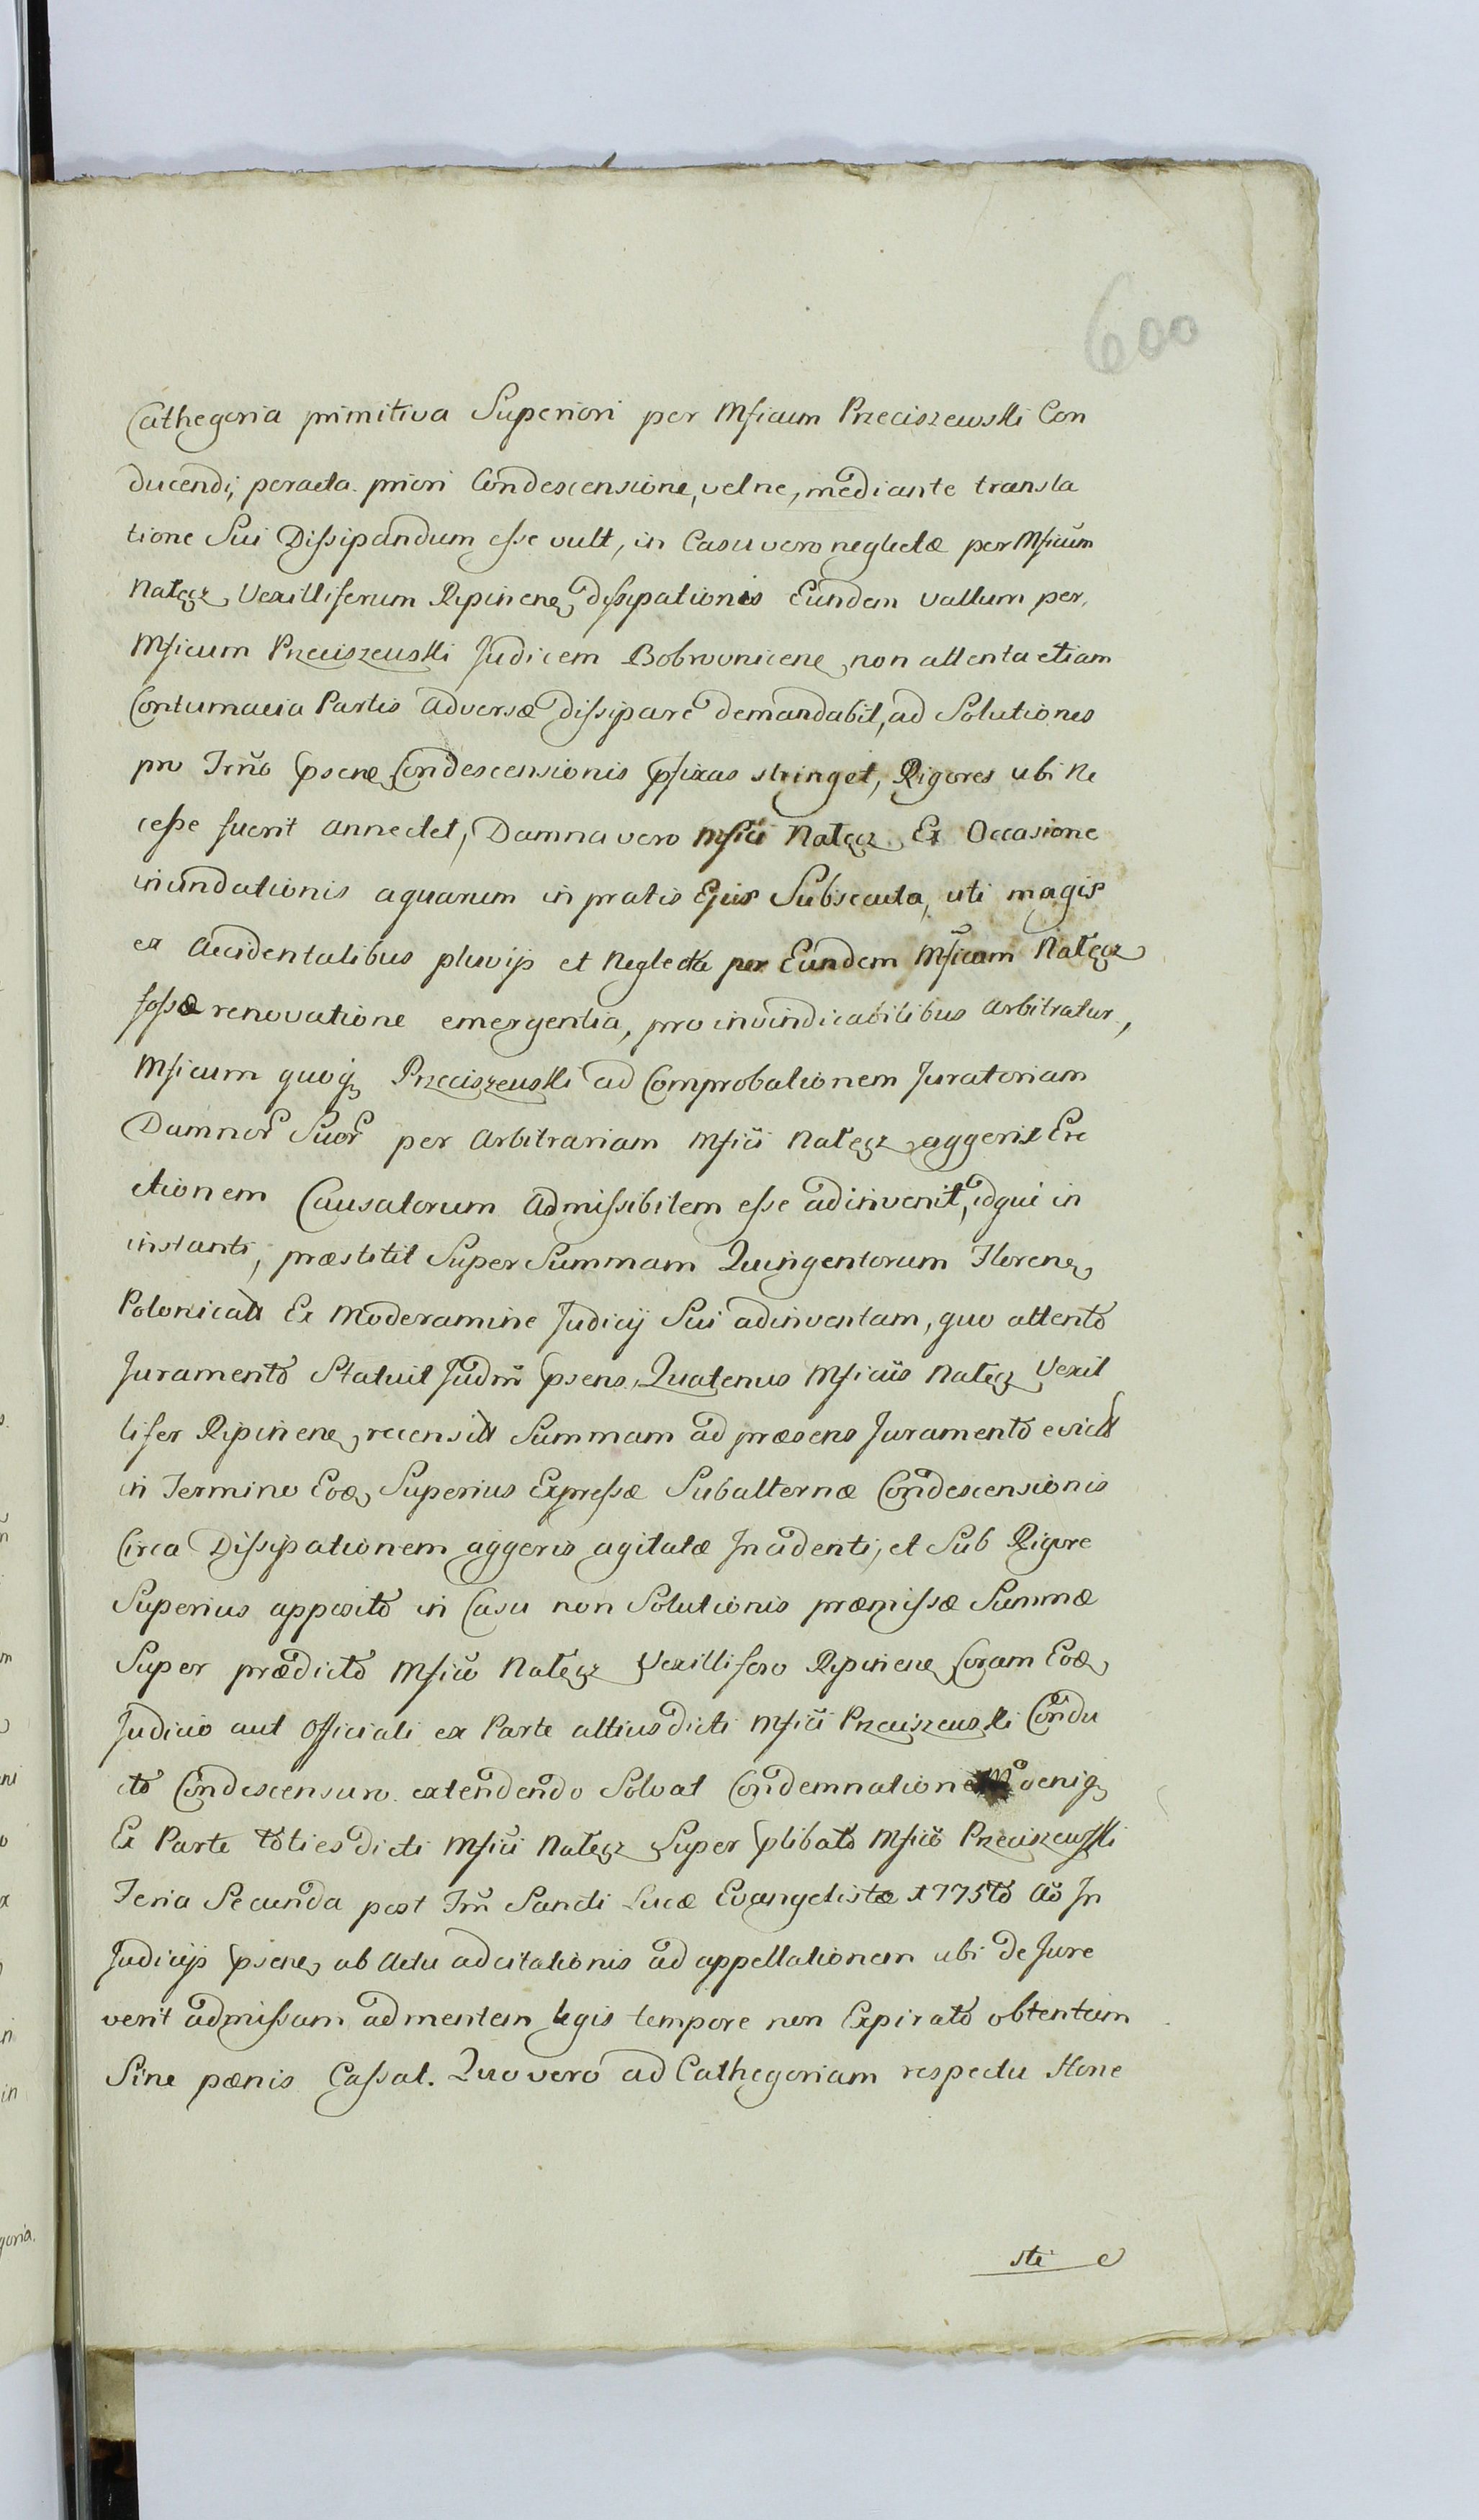 600
Cathegoria primitiva Superiori per Mficum Przeciszewski Con
ducendi, peracta priori Condescensione, vel ne, mediante transla
tione Sui Dissipandum esse vult, in Casu vero neglectæ per Mficum
Nałęcz Vexilliferum Ripinenę dissipationis Eundem vallum per
Mficum Przeciszewski Judicem Bobrovnicenę non attenta etiam
Contumacia Partis adversæ dissipare demandabit, ad Solutiones
pro Trno psenę Condescensionis pfixas stringet, Rigores ubi Ne
cesse fuerit annectet, Damna vero Mfici Nałęcz Ex Occasione
inundationis aquarum in pratis Ejus Subsecuta, uti magis
ex Accidentalibus pluvijs et Neglecta per Eundem Mficum Nałęcz
fossæ renovatione emergentia, pro invindicabilibus arbitratur,
Mficum quoq Przeciszewski ad Comprobationem Juratoriam
Damnor Suor per Arbitrariam Mfici Nałęcz aggeris Ere
ctionem Causatorum admissibilem esse adinvenit, idqui in
instanti, præstitit Super Summam Quingentorum Florenę
Polonicali Ex Moderamine Judicij Sui adinventam, quo attento
Juramento Statuit Judm psens, Quatenus Mficus Nałęcz Vexil
lifer Ripinenę recensit Summam ad præsens Juramento evict
in Termino Eodę Superius Expressæ Subalternæ Condescensionis
Circa Dissipationem aggeris agitatæ Incidenti, et Sub Rigore
Superius apposito in Casu non Solutionis præmissæ Summæ
Super prædicto Mfico Nałęcz Vexillifero Ripinenę Coram Eodę
Judicio aut Officiali ex Parte altius dicti Mfici Przeciszewski Condu
cto Condescensuro extendendo Solvat Condemnationem
Ex Parte toties dicti Mfici Nałęcz Super plibato Mfico Przeciszewski
Feria Secunda post Frm Sancti Lucæ Evangelistæ 1775to Ao In
Judicijs psenę ab Actu adcitationis ad appellationem ubi de Jure
verit admissam ad mentem legis tempore non Expirato obtentam
Sine pœnis Cassat. Quo vero ad Cathegoriam respectu Hone
sti